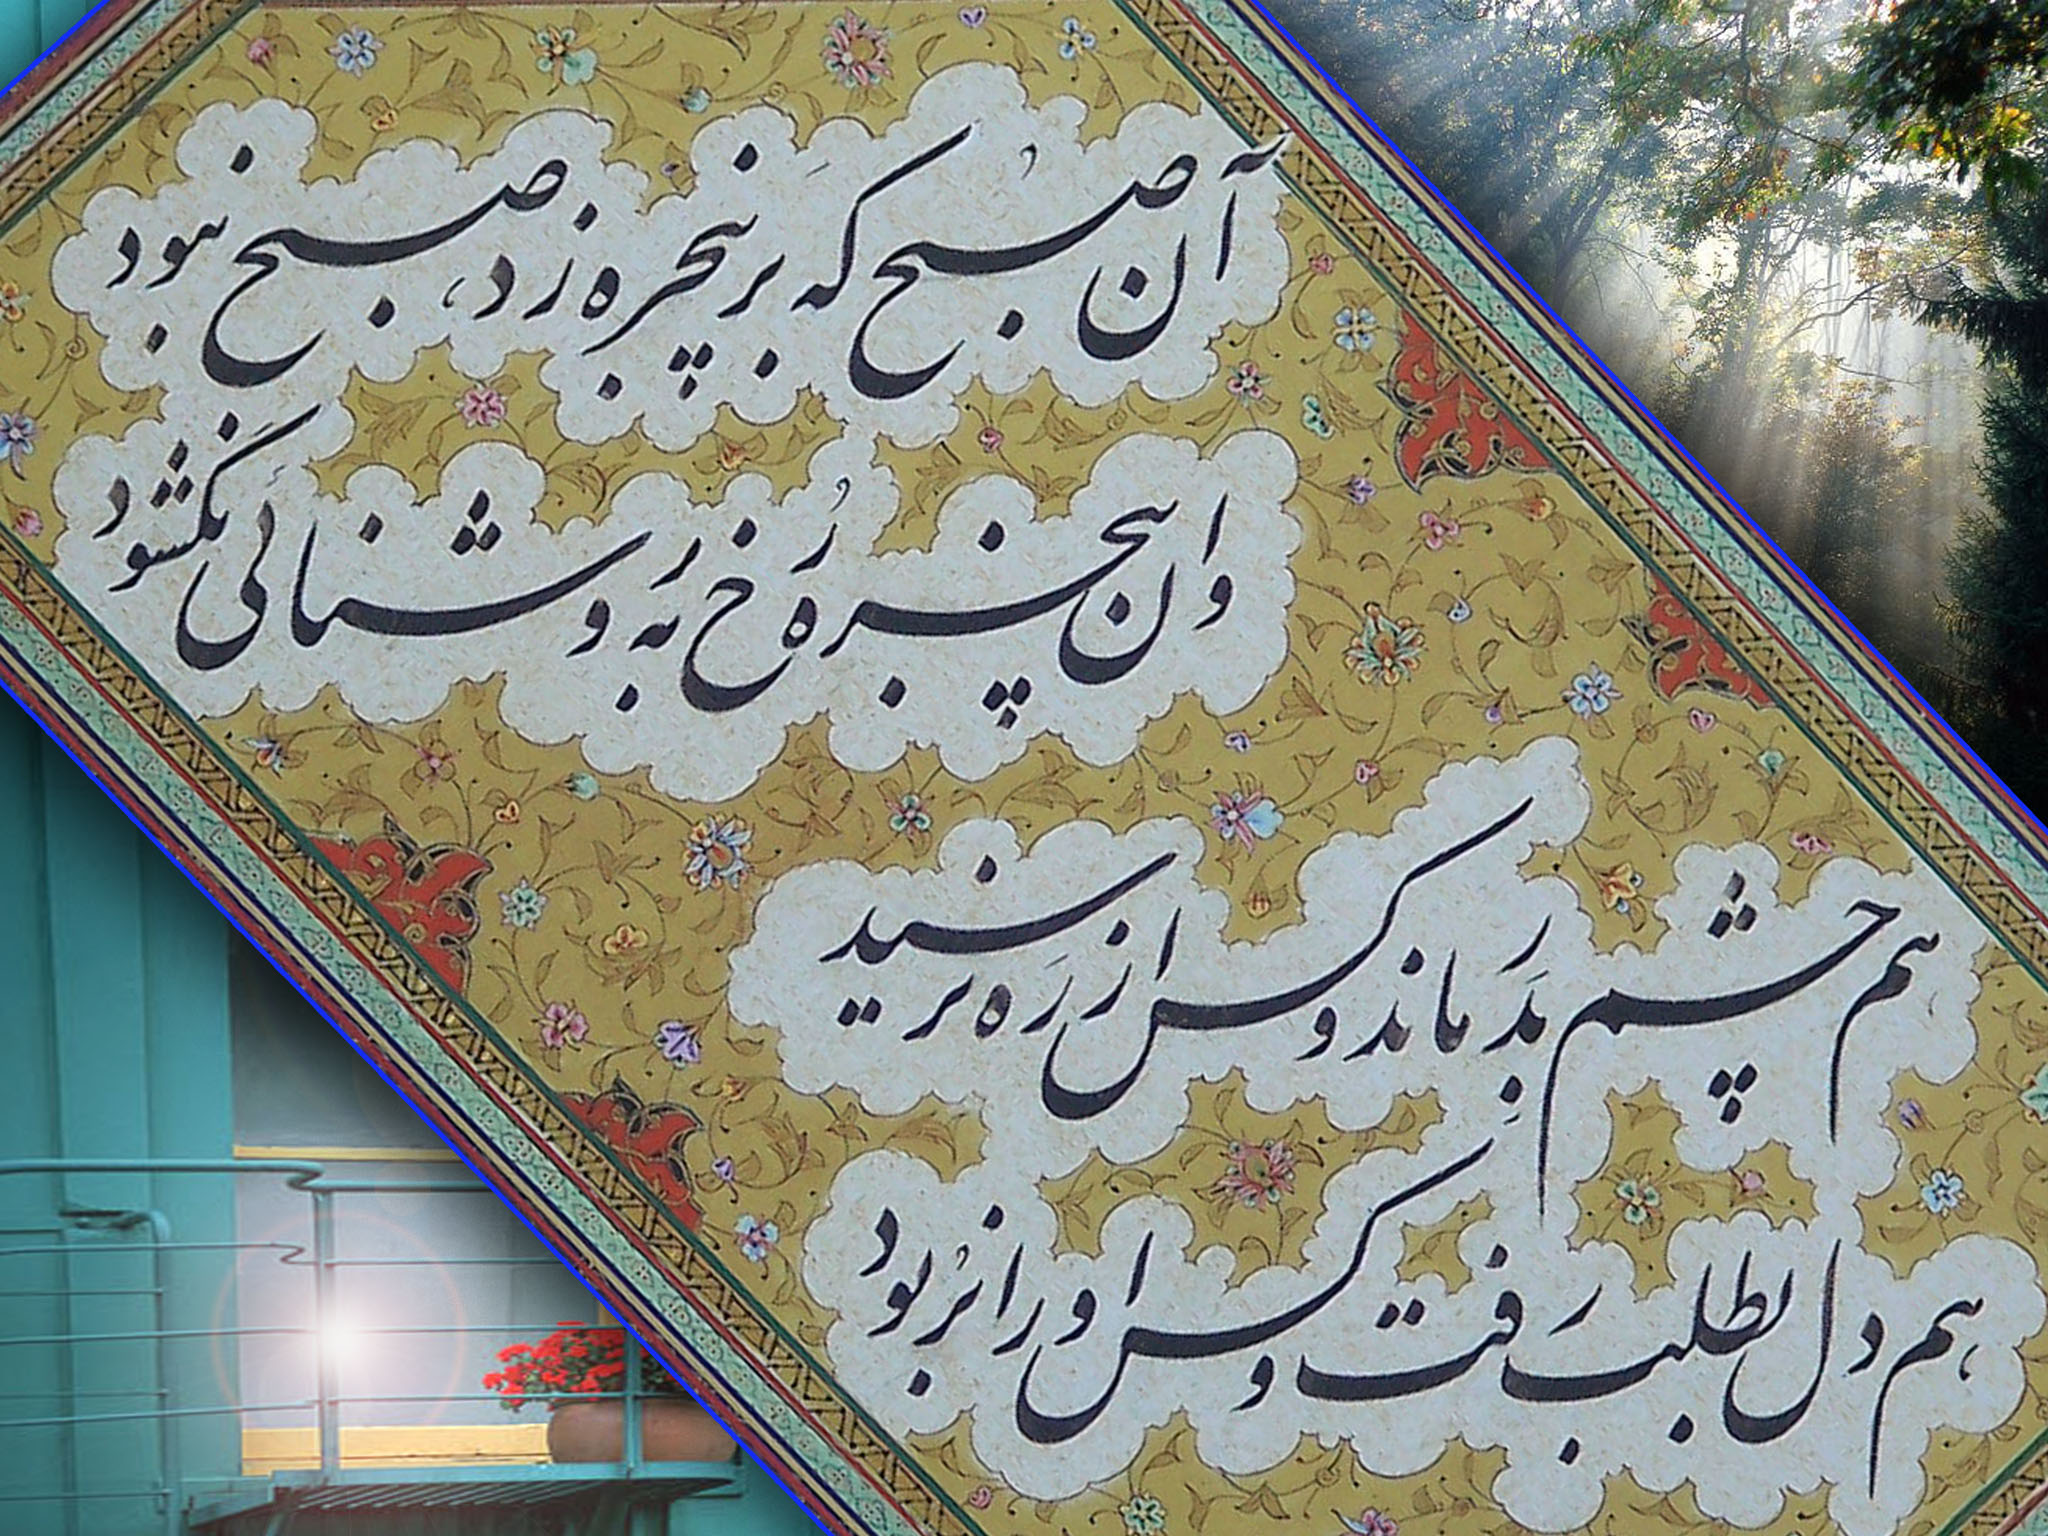 آن صبح که بر پنجره زد، صبح نبود
وان پنجره رُخ به روشنائی نگشود
هم چشم بدَر ماند و کس از رَه نرسید
هم دل بطلب رفت و کس او را نربود